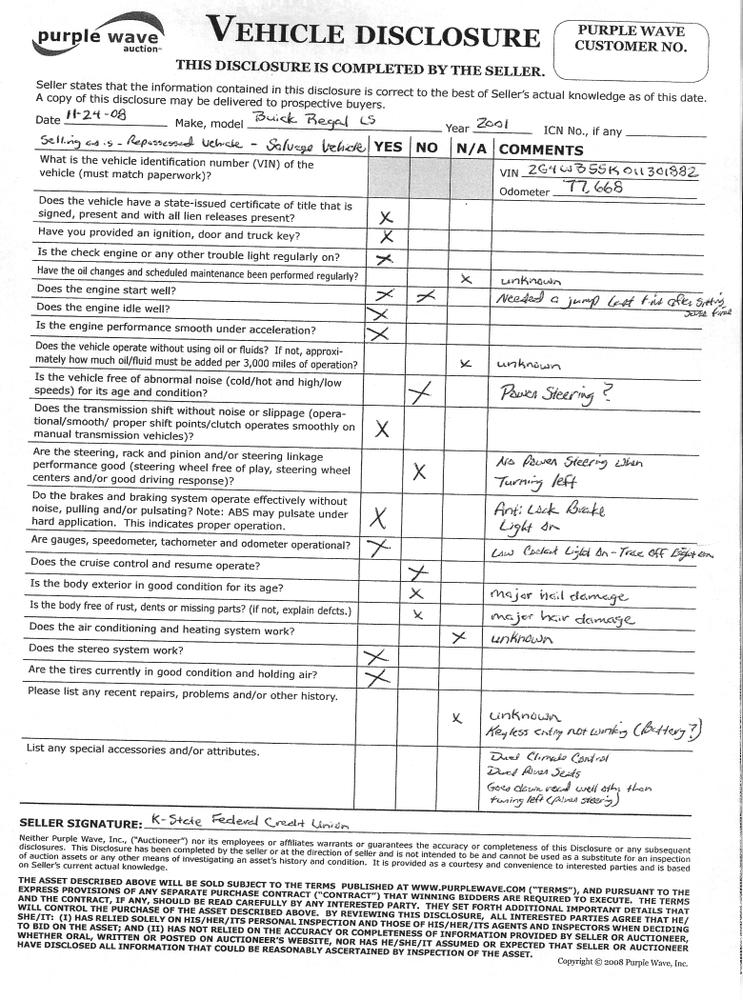 purple wave
auction
VEHICLE DISCLOSURE
PURPLE WAVE
CUSTOMER NO.
THIS DISCLOSURE IS COMPLETED BY THE SELLER.
Seller states that the information contained in this disclosure is correct to the best of Seller's actual knowledge as of this date.
A copy of this disclosure may be delivered to prospective buyers.
Date 11-24-08 Make, model Buick Regal LS Year 2001 ICN No., if any
Selling as is - Repossessed Vehicle - Salvage Vehicle YES NO N/A COMMENTS
What is the vehicle identification number (VIN) of the
vehicle (must match paperwork)?
VIN 2G4WB55K011301882
Odometer 77,668
Does the vehicle have a state-issued certificate of title that is
signed, present and with all lien releases present? X
Have you provided an ignition, door and truck key? X
Is the check engine or any other trouble light regularly on? X
Have the oil changes and scheduled maintenance been performed regularly? X unknown
Does the engine start well? X X Needed a jump last time after sitting
some time
Does the engine idle well? X
Is the engine performance smooth under acceleration? X
Does the vehicle operate without using oil or fluids? If not, approxi-
mately how much oil/fluid must be added per 3,000 miles of operation? X unknown
Is the vehicle free of abnormal noise (cold/hot and high/low
speeds) for its age and condition? X Power Steering?
Does the transmission shift without noise or slippage (opera-
tional/smooth/ proper shift points/clutch operates smoothly on
manual transmission vehicles)? X
Are the steering, rack and pinion and/or steering linkage
performance good (steering wheel free of play, steering wheel
centers and/or good driving response)? X
No Power Steering when
Turning left
Do the brakes and braking system operate effectively without
noise, pulling and/or pulsating? Note: ABS may pulsate under
hard application. This indicates proper operation. X
Anti Lock Brake
Light on
Are gauges, speedometer, tachometer and odometer operational? X Low Coolant Light On - Trac Off Light on
Does the cruise control and resume operate? X
Is the body exterior in good condition for its age? X major hail damage
Is the body free of rust, dents or missing parts? (if not, explain defcts.) X major hair damage
Does the air conditioning and heating system work? X unknown
Does the stereo system work? X
Are the tires currently in good condition and holding air? X
Please list any recent repairs, problems and/or other history.
X unknown
Keyless entry not working (Battery?)
List any special accessories and/or attributes.
Dual Climate Control
Dual Power Seats
Goes down road well other than
turning left (power steering)
SELLER SIGNATURE: K-State Federal Credit Union
Neither Purple Wave, Inc., ("Auctioneer") nor its employees or affiliates warrants or guarantees the accuracy or completeness of this Disclosure or any subsequent
disclosures. This Disclosure has been completed by the seller or at the direction of seller and is not intended to be and cannot be used as a substitute for an inspection
of auction assets or any other means of investigating an asset's history and condition. It is provided as a courtesy and convenience to interested parties and is based
on Seller's current actual knowledge.
THE ASSET DESCRIBED ABOVE WILL BE SOLD SUBJECT TO THE TERMS PUBLISHED AT WWW.PURPLEWAVE.COM ("TERMS"), AND PURSUANT TO THE
EXPRESS PROVISIONS OF ANY SEPARATE PURCHASE CONTRACT ("CONTRACT") THAT WINNING BIDDERS ARE REQUIRED TO EXECUTE. THE TERMS
AND THE CONTRACT, IF ANY, SHOULD BE READ CAREFULLY BY ANY INTERESTED PARTY. THEY SET FORTH ADDITIONAL IMPORTANT DETAILS THAT
WILL CONTROL THE PURCHASE OF THE ASSET DESCRIBED ABOVE. BY REVIEWING THIS DISCLOSURE, ALL INTERESTED PARTIES AGREE THAT HE/
SHE/IT: (I) HAS RELIED SOLELY ON HIS/HER/ITS PERSONAL INSPECTION AND THOSE OF HIS/HER/ITS AGENTS AND INSPECTORS WHEN DECIDING
TO BID ON THE ASSET; AND (II) HAS NOT RELIED ON THE ACCURACY OR COMPLETENESS OF INFORMATION PROVIDED BY SELLER OR AUCTIONEER,
WHETHER ORAL, WRITTEN OR POSTED ON AUCTIONEER'S WEBSITE, NOR HAS HE/SHE/IT ASSUMED OR EXPECTED THAT SELLER OR AUCTIONEER
HAVE DISCLOSED ALL INFORMATION THAT COULD BE REASONABLY ASCERTAINED BY INSPECTION OF THE ASSET.
Copyright © 2008 Purple Wave, Inc.